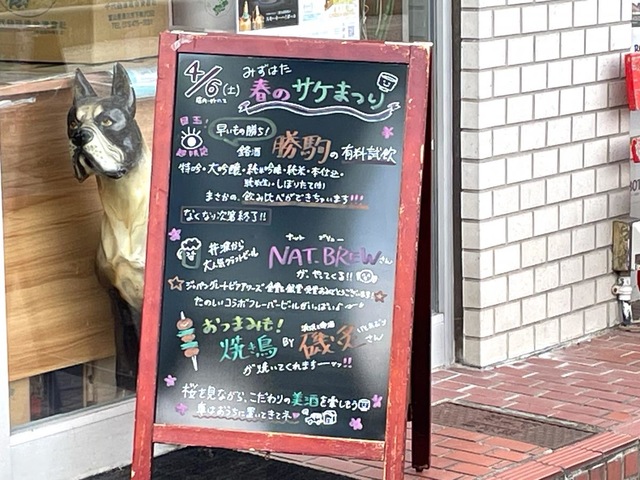 4/6(土)
みずはた
春のサケまつり
目玉!
早いもの勝ち!
銘酒 勝駒の有料試飲
特吟・大吟醸・純米吟醸・純米・本仕込・
しぼりたて(
まさかの、飲み比べができちゃいます!!!
なくなり次第終了!!
井波から
大人気クラフトビール
ナット ブリュー
NAT.BREWさん
が、やってくる!!
☆ジャパングレートビアアワーズ 金賞&銀賞受賞おめでとうございます!☆
たのしいコラボフレーバービールがいっぱい♪
おつまみも!
焼き鳥 BY 磯炙 いそあぶり さん
が焼いてくれますーーッ!!
桜を見ながら、こだわりの美酒を楽しもう
車はおうちに置いてきてネ♥